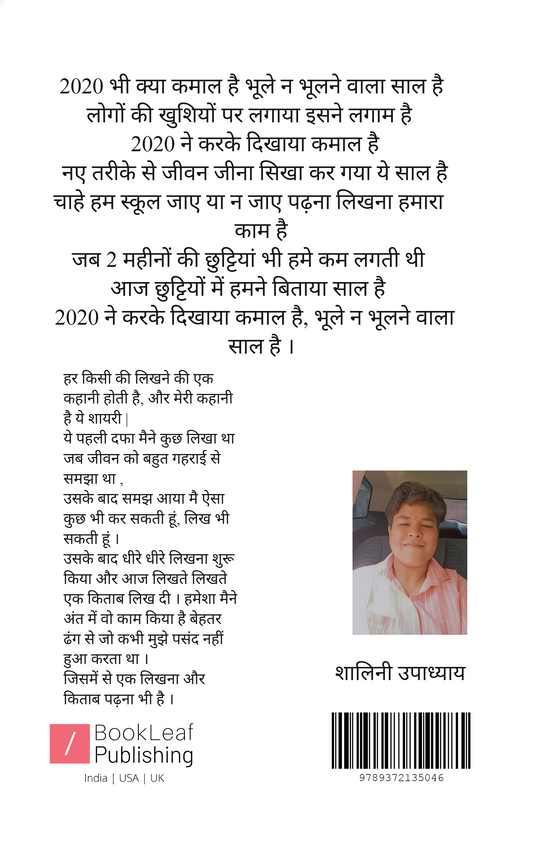 2020 भी क्या कमाल है भूले न भूलने वाला साल है
लोगों की खुशियों पर लगाया इसने लगाम है
2020 ने करके दिखाया कमाल है
नए तरीके से जीवन जीना सिखा कर गया ये साल है
चाहे हम स्कूल जाए या न जाए पढ़ना लिखना हमारा
काम है
जब 2 महीनों की छुट्टियां भी हमे कम लगती थी
आज छुट्टियों में हमने बिताया साल है
2020 ने करके दिखाया कमाल है, भूले न भूलने वाला
साल है ।
हर किसी की लिखने की एक
कहानी होती है, और मेरी कहानी
है ये शायरी |
ये पहली दफा मैने कुछ लिखा था
जब जीवन को बहुत गहराई से
समझा था ,
उसके बाद समझ आया मै ऐसा
कुछ भी कर सकती हूं, लिख भी
सकती हूं ।
उसके बाद धीरे धीरे लिखना शुरू
किया और आज लिखते लिखते
एक किताब लिख दी । हमेशा मैने
अंत में वो काम किया है बेहतर
ढंग से जो कभी मुझे पसंद नहीं
हुआ करता था ।
जिसमें से एक लिखना और
किताब पढ़ना भी है ।
शालिनी उपाध्याय
BookLeaf
Publishing
India | USA | UK
9789372135046